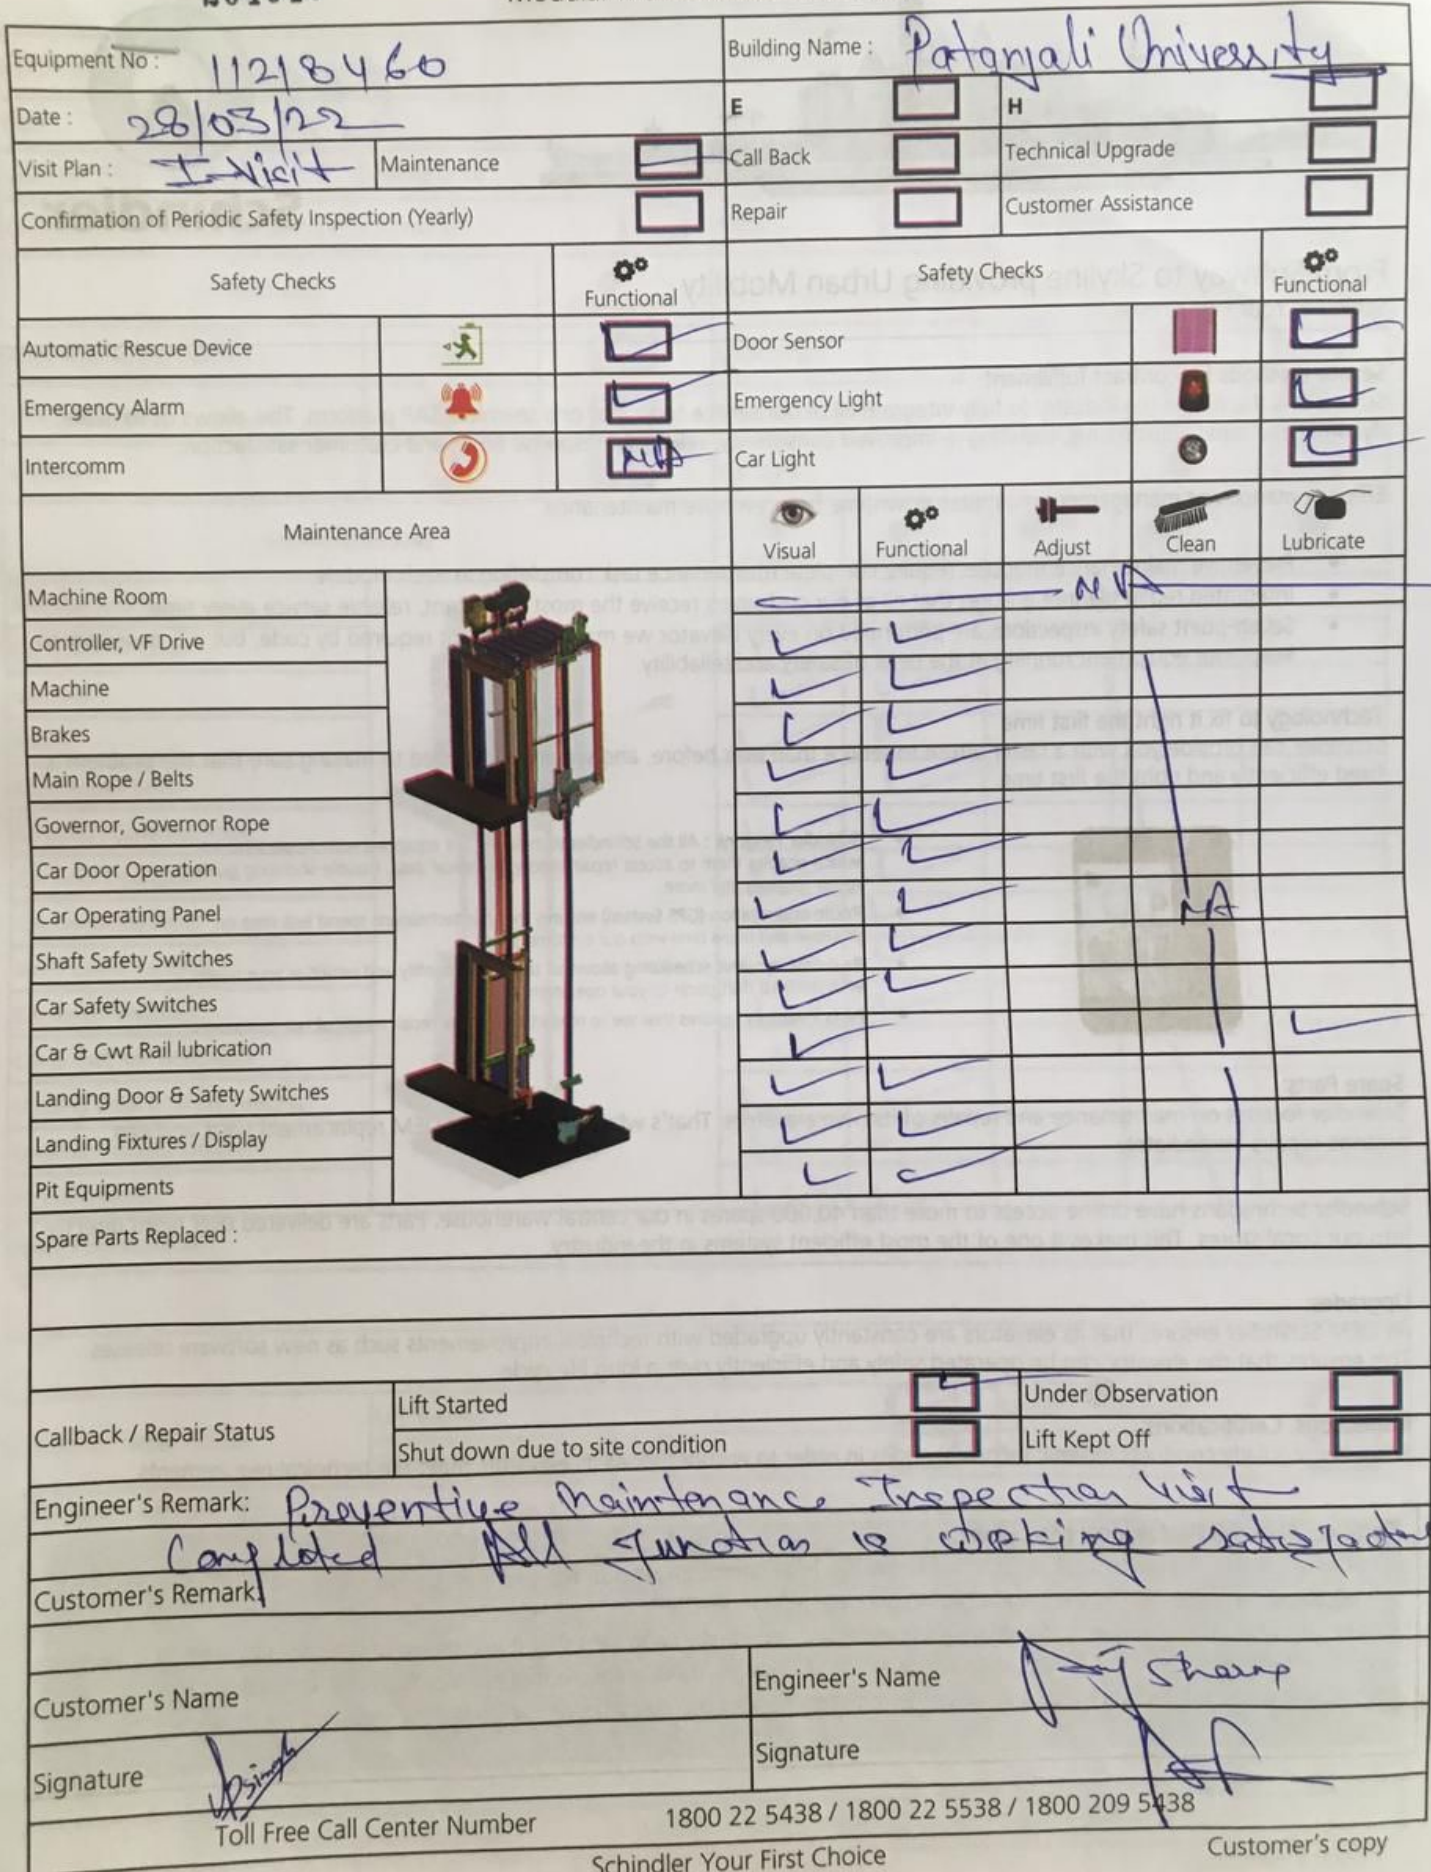 Equipment No : 11218460
Building Name : Patanjali University
Date : 28/03/22
E
H
Visit Plan : I-Visit
Maintenance
Call Back
Technical Upgrade
Confirmation of Periodic Safety Inspection (Yearly)
Repair
Customer Assistance
Safety Checks
Functional
Safety Checks
Functional
Automatic Rescue Device
Door Sensor
Emergency Alarm
Emergency Light
Intercomm
N/A
Car Light
Maintenance Area
Visual
Functional
Adjust
Clean
Lubricate
Machine Room
NA
Controller, VF Drive
Machine
Brakes
Main Rope / Belts
Governor, Governor Rope
Car Door Operation
Car Operating Panel
NA
Shaft Safety Switches
Car Safety Switches
Car & Cwt Rail lubrication
Landing Door & Safety Switches
Landing Fixtures / Display
Pit Equipments
Spare Parts Replaced :
Callback / Repair Status
Lift Started
Under Observation
Shut down due to site condition
Lift Kept Off
Engineer's Remark: Preventive Maintenance Inspection Visit
Completed All function is working
Customer's Remark
Customer's Name
Engineer's Name
Signature
Signature
Toll Free Call Center Number 1800 22 5438 / 1800 22 5538 / 1800 209 5438
Schindler Your First Choice
Customer's copy